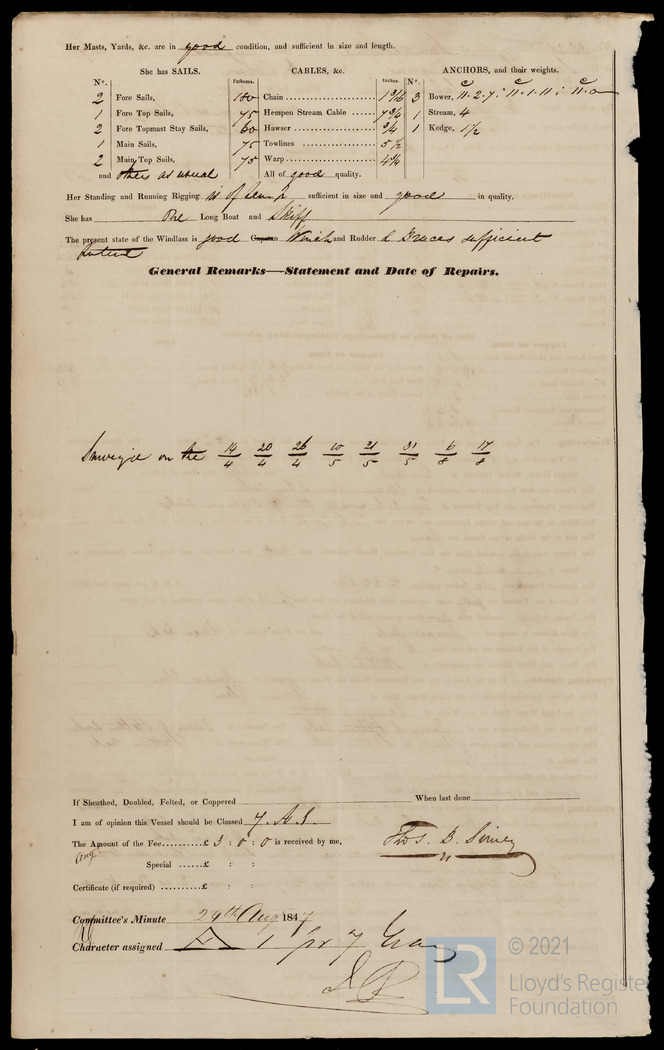 Her Masts, Yards, &c. are in good condition, and sufficient in size and length.
She has SAILS.
CABLES, &c.
ANCHORS, and their weights.
N°. Fathoms. Inches. N°.
2 Fore Sails, 100 Chain 1 3/16 3 Bower, 11.2.7: 11.1.11: 11.0
1 Fore Top Sails, 75 Hempen Stream Cable 1 Stream, 4
2 Fore Topmast Stay Sails, 60 Hawser 1 Kedge, 1½
1 Main Sails, 75 Towlines 5½
2 Main Top Sails, 75 Warp
and others as usual All of good quality.
Her Standing and Running Rigging is of Hemp sufficient in size and good in quality.
She has One Long Boat and Skiff
The present state of the Windlass is good Capstan Winch and Rudder & Braces sufficient
Patent
General Remarks—Statement and Date of Repairs.
on the 14/4 20/4 26/4 10/5 21/5 31/5 6/8 17/8
If Sheathed, Doubled, Felted, or Coppered When last done
I am of opinion this Vessel should be Classed 7. A 1.
The Amount of the Fee.........£ 3 : 0 : 0 is received by me,
Thos. B.
Special ......£ : :
Certificate (if required) ..........£ : :
Committee's Minute 24th Aug 1847
Character assigned A 1 for 7 Years
© 2021
LR
Lloyd's Register
Foundation